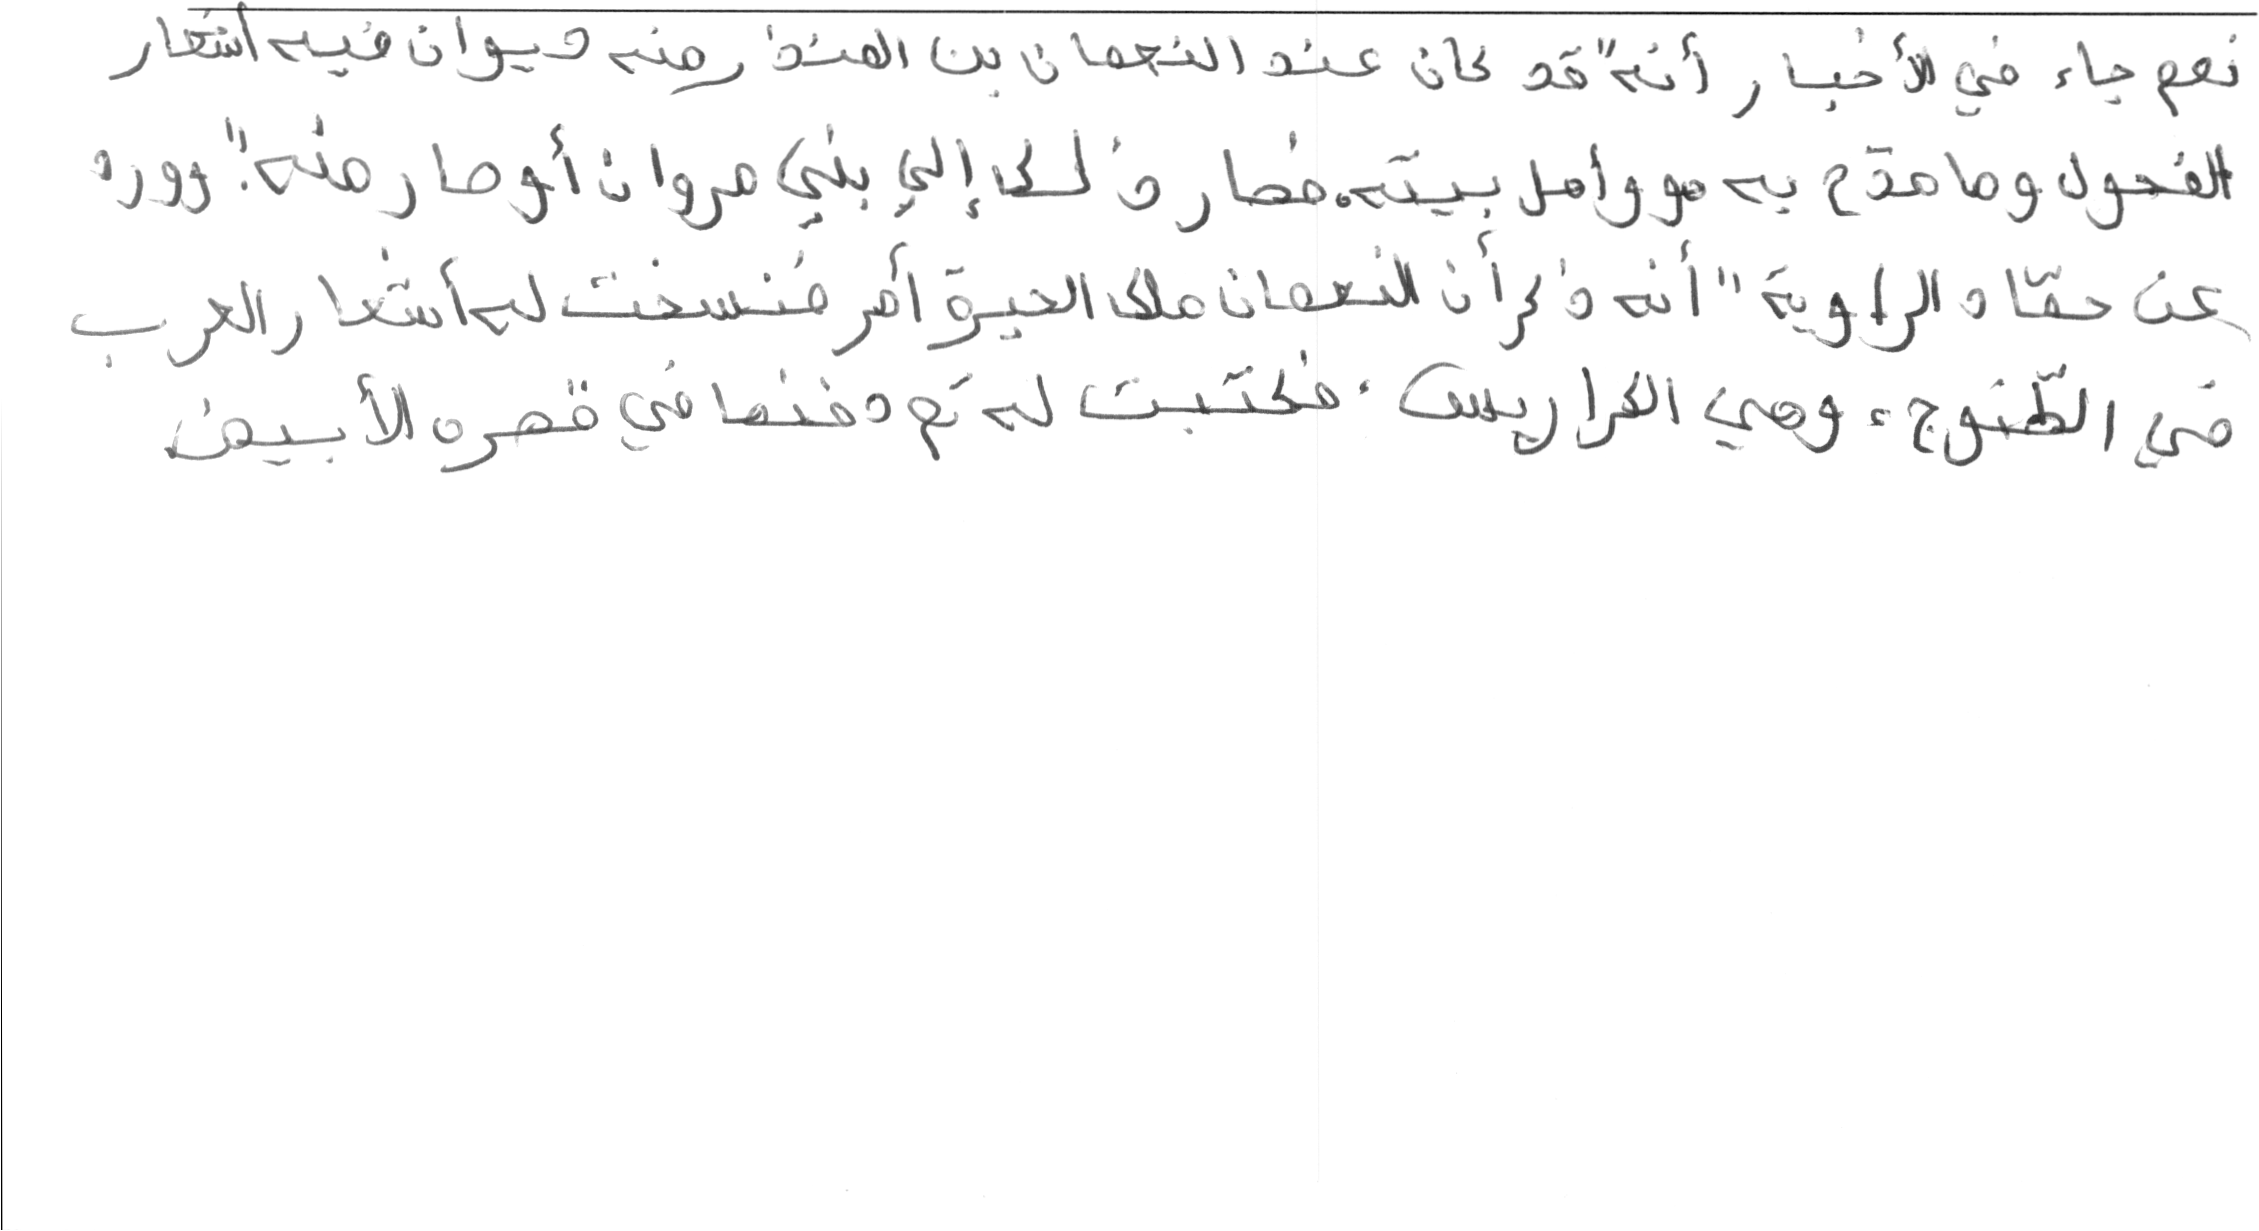 نعم جاء في الأخبار أنه "قد كان عند النعمان بن المنذر منه ديوان فيه أشعار
الفحول وما مدّح به هو وأهل بيته. فصار ذلك إلي بني مروان أو صار منه". وورد
عن حمّاد الراوية "أنه ذكر أن النعمان ملك الحيرة أمر فنسخت له أشعار العرب
في الطّنوج، وهي الكراريس، فكتبت له ثم دفنها في قصره الأبيض